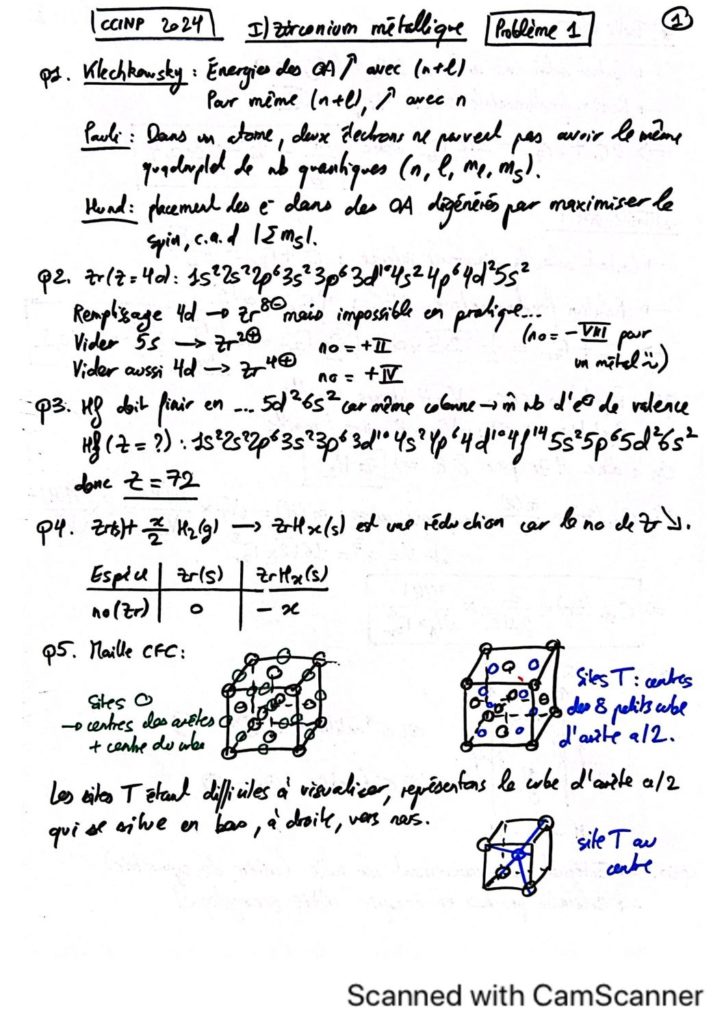 CCINP 2024 I) Zirconium métallique Problème 1 1
Q1. Klechkowsky : Énergies des OA ↗ avec (n+l)
Pour même (n+l), ↗ avec n
Pauli : Dans un atome, deux électrons ne peuvent pas avoir le même
quadruplet de nb quantiques (n, l, ml, ms).
Hund : placement des e⁻ dans des OA dégénérés par maximiser le
spin, c.a.d |Σms|.
Q2. Zr(Z=40) : 1s²2s²2p⁶3s²3p⁶3d¹⁰4s²4p⁶4d²5s²
Remplissage 4d → Zr⁸⊖ mais impossible en pratique...
(no = -VIII pour
Vider 5s → Zr²⊕ no = +II
un métal ¨)
Vider aussi 4d → Zr⁴⊕ no = +IV
Q3. Hf doit finir en ... 5d²6s² car même colonne → m̂ nb d'e⊖ de valence
Hf(Z=?) : 1s²2s²2p⁶3s²3p⁶3d¹⁰4s²4p⁶4d¹⁰4f¹⁴5s²5p⁶5d²6s²
donc Z = 72
Q4. Zr(s)+ x/2 H₂(g) → ZrHx(s) est une réduction car le no de Zr ↘.
Espèce | Zr(s) | ZrHx(s)
no(Zr) | 0 | -x
Q5. Maille CFC :
Sites O
→ centres des arêtes
+ centre du cube
Sites T : centres
des 8 petits cube
d'arête a/2.
Les sites T étant difficiles à visualiser, représentons le cube d'arête a/2
qui se situe en bas, à droite, vers nous.
site T au
centre
Scanned with CamScanner